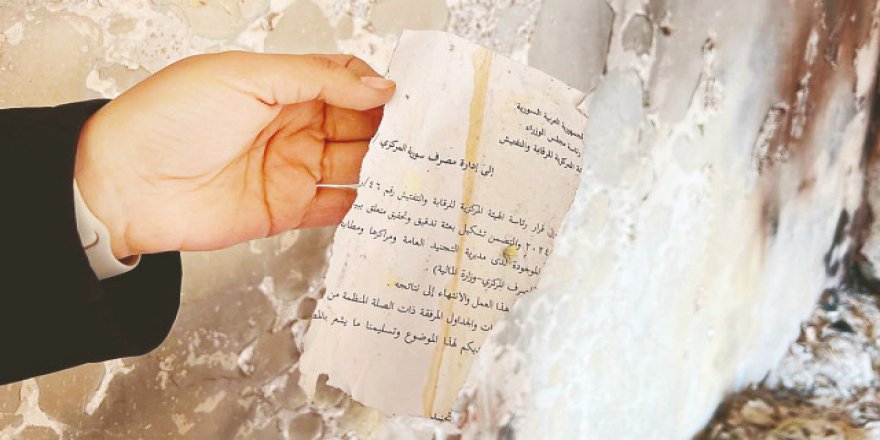 لجمهورية العربية السورية
رئاسة مجلس الوزراء
المركزية للرقابة والتفتيش
إلى إدارة مصرف سورية المركزي
قرار رئاسة الهيئة المركزية للرقابة والتفتيش رقم ٤٦/و
٢٠٢٤ والمتضمن تشكيل بعثة تدقيق وتحقيق متعلق ببي
الموجودة لدى مديرية التجنيد العامة ومراكزها ومطابـ
لمصرف المركزي-وزارة المالية) .
هذا العمل والانتهاء إلى نتائجه .
ات والجداول المرفقة ذات الصلة المنظمة من
ليكم لهذا الموضوع وتسليمنا ما يشعر بالمـ